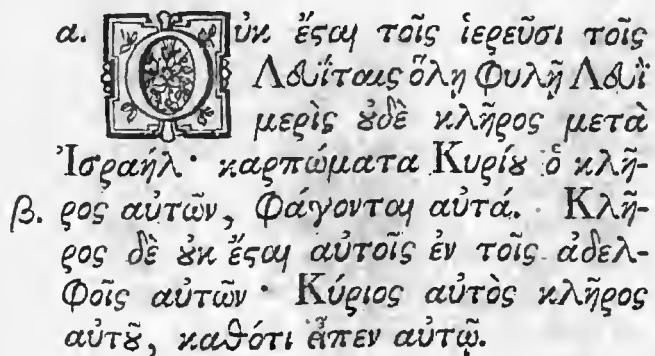 α. Οὐκ ἔςαι τοῖς ἱερεῦσι τοῖς
Λευΐταις ὅλῃ φυλῇ Λευῒ
μερὶς ȣδὲ κλῆρος μετὰ
Ἰσραήλ· καρπώματα Κυρίȣ ὁ κλῆ-
β. ρος αὐτῶν, φάγονται αὐτά. Κλῆ-
ρος δὲ ȣκ ἔςαι αὐτοῖς ἐν τοῖς ἀδελ-
φοῖς αὐτῶν· Κύριος αὐτὸς κλῆρος
αὐτȣ͂, καθότι εἶπεν αὐτῷ.